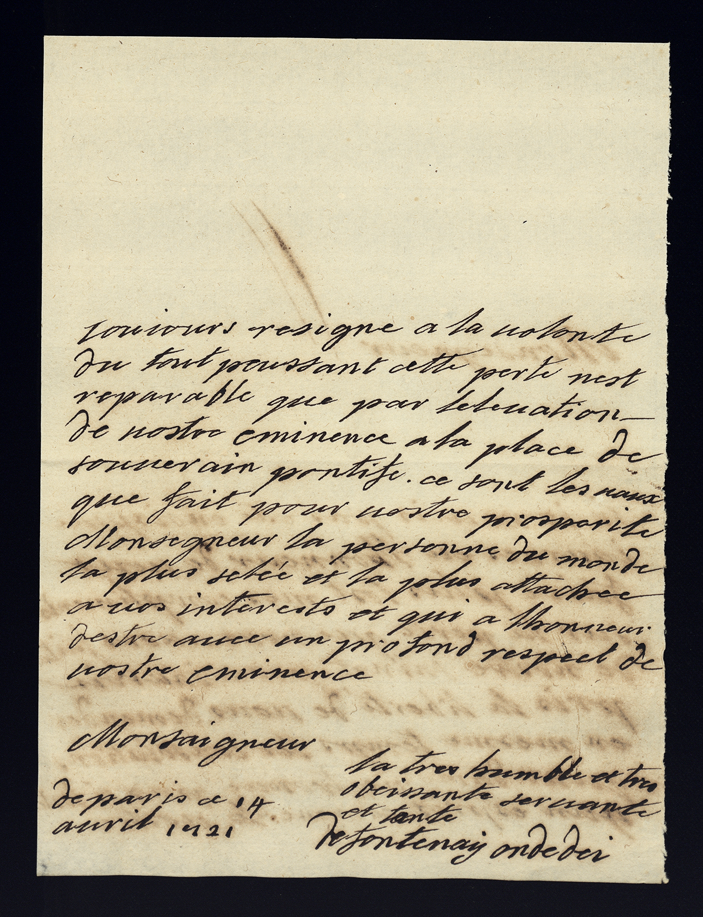 touiours resigne a la uolonte
du tout peussant cette perte nest
reparable que par leleuation
de uostre eminence a la place de
souuerain pontife. ce sont les uaux
que fait pour uostre prosperite
Monsegneur la personne du monde
la plus selée et la plus attachee
a uos interests et qui a lhonneur
destre auec un profond respect de
uostre eminence
Monsaigneur
la tres humble et tres
obeissante seruante
et tante
de fontenay ondedei
de paris ce 14
auril 1721